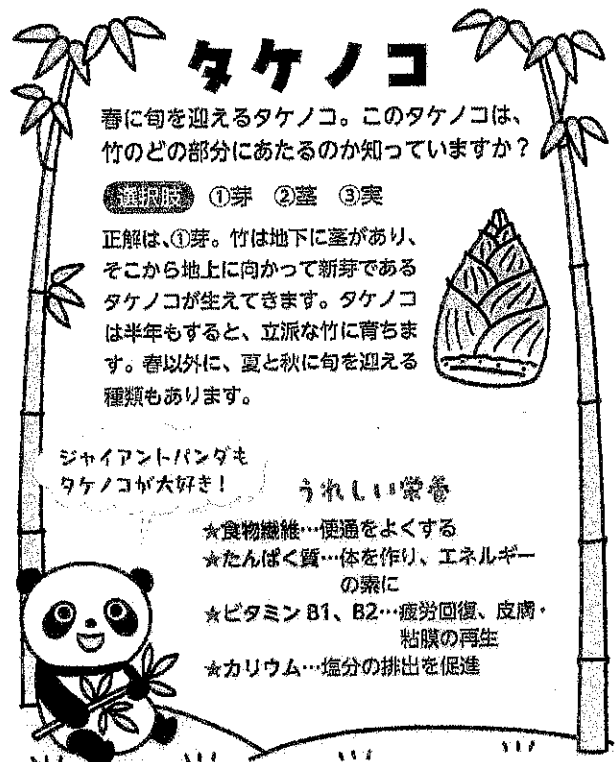 タケノコ
春に旬を迎えるタケノコ。このタケノコは、
竹のどの部分にあたるのか知っていますか？
選択肢 ①芽 ②茎 ③実
正解は、①芽。竹は地下に茎があり、
そこから地上に向かって新芽である
タケノコが生えてきます。タケノコ
は半年もすると、立派な竹に育ちま
す。春以外に、夏と秋に旬を迎える
種類もあります。
ジャイアントパンダも
タケノコが大好き！
うれしい栄養
★食物繊維…便通をよくする
★たんぱく質…体を作り、エネルギー
の素に
★ビタミンB1、B2…疲労回復、皮膚・
粘膜の再生
★カリウム…塩分の排出を促進